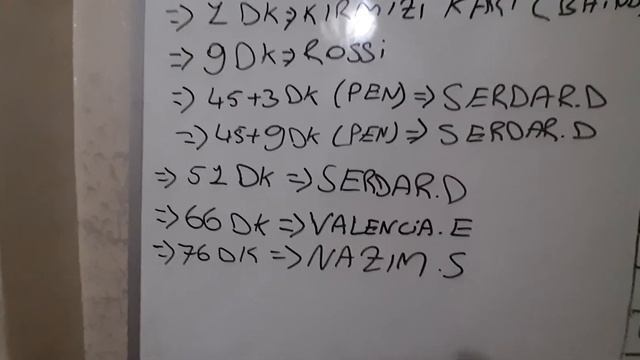 => 1 DK => KIRMIZI KART (
=> 9 DK => ROSSi
=> 45+3 DK (PEN) => SERDAR.D
=> 45+9 DK (PEN) => SERDAR.D
=> 51 DK => SERDAR.D
=> 66 DK => VALENCiA.E
=> 76 DK => NAZIM.S